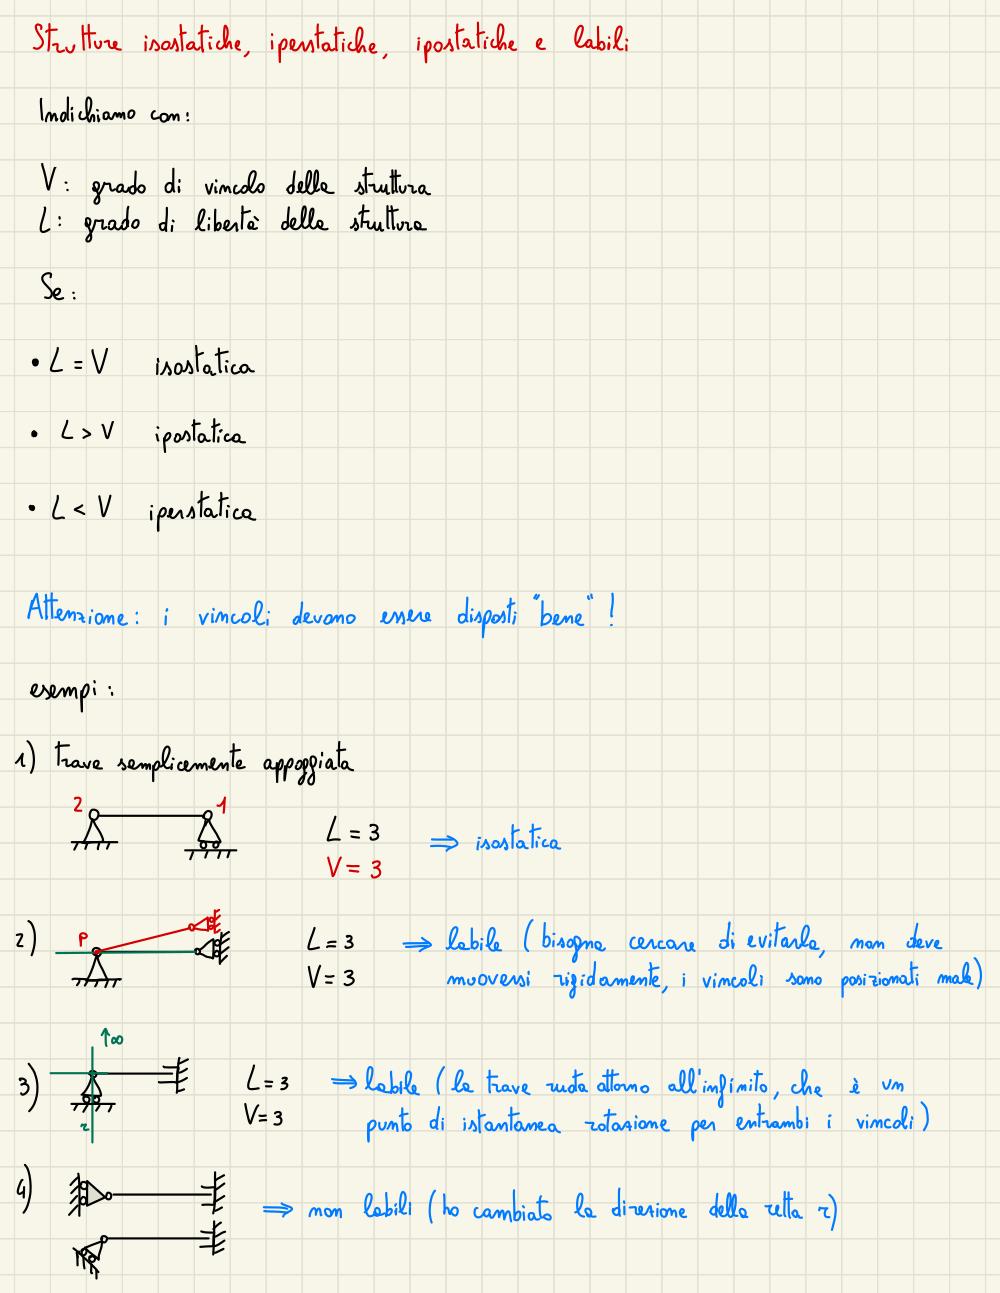 Strutture isostatiche, iperstatiche, ipostatiche e labili
Indichiamo con:
V: grado di vincolo della struttura
L: grado di libertà della struttura
Se:
• L = V isostatica
• L > V ipostatica
• L < V iperstatica
Attenzione: i vincoli devono essere disposti "bene" !
esempi:
1) trave semplicemente appoggiata
2 1
L = 3
V = 3
⇒ isostatica
2)
P
L = 3
V = 3
⇒ labile (bisogna cercare di evitarla, non deve
muoversi rigidamente, i vincoli sono posizionati male)
↑∞
3)
r
L = 3
V = 3
⇒ labile (la trave ruota attorno all'infinito, che è un
punto di istantanea rotazione per entrambi i vincoli)
4)
⇒ non labili (ho cambiato la direzione della retta r)